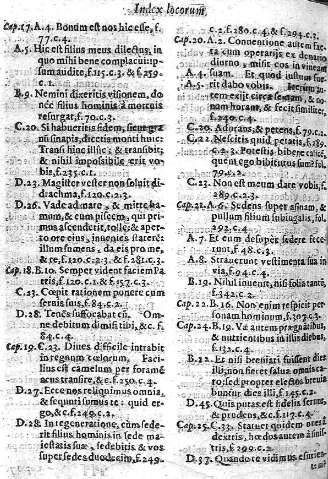 Index locorum
Cap.17. A.4. Bonum est nos hic esse, f.
77.c.4.
A.5. Hic est filius meus dilectus, in
quo mihi bene complacui: ip-
sum audite, f.115.c.3. & f.259.
c.1.
B.9. Nemini dixeritis visionem, do-
nec filius hominis à mortuis
resurgat, f.70.c.3.
C.20. Si habueritis fidem, sicut gra-
nũ sinapis, dicetis monti huic:
Transi hinc illuc: & transibit;
& nihil impossibile erit vo-
bis, f.235.c.1.
D.23. Magister vester non soluit di-
drachma, f.120.c.2.
D.26. Vade ad mare, & mitte ha-
mum, & eum piscem, qui pri-
mus ascenderit, tolle; & aper-
to ore eius, inuenies staterẽ:
illum sumens, da eis pro me,
& te, f.120.c.2.3. & f.281.c.3.
Cap.18. B.10. Semper vident faciem Pa-
tris, f.120.c.1. & f.157.c.3.
C.23. Cœpit rationem ponere cum
seruis suis, f.84.c.2.
D.28. Tenẽs suffocabat eũ. Om-
ne debitum dimisi tibi, &c. f.
84.c.1.
Cap.19. C.23. Diues difficile intrabit
in regnum cœlorum. Faci-
lius est camelum per foramẽ
acus transire, &c. f.250.c.4.
D.27. Ecce nos reliquimus omnia,
& sequuti sumus te: quid er-
go, &c. f.249.c.2.
D.28. In regeneratione, cùm sede-
rit filius hominis in sede ma-
iestatis suæ, sedebitis & vos
super sedes duodecim, f.249.
c.2. f.280.c.4. & f.294.c.3.
Cap.20. A.2. Conuentione autem fac-
ta cum operarijs ex denario
diurno, misit eos in vineam
A.4. suam. Et quod iustum fue-
A.5. rit dabo vobis. Iterum
exijt circa sextam, & no-
nam horam, & fecit similiter,
f.240.c.4.
C.20. Adorans, & petens, f.79.c.1.
C.22. Nescitis quid petatis, f.189.
c.3. Potestis bibere calicẽ,
quem ego bibiturus sum? fol.
79.c.2.
C.23. Non est meum dare vobis, f.
289.c.2.3.
Cap.21. A.5. Sedens super asinam, &
pullum filium subiugalis, fol.
292.c.4.
A.7. Et eum desuper sedere fece-
runt, f.48.c.3.
A.8. Strauerunt vestimenta sua in
via, f.94.c.4.
B.19. Nihil inuenit, nisi folia tantũ,
f.142.c.2.
Cap.22. B.16. Non enim respicis per-
sonam hominum, f.307.c.3.
Cap.24. B.19. Væ autem prægnãtibus,
& nutrientibus in illis diebus,
f.132.c.4.
B.22. Et nisi breuiati fuissent dies
illi, non fieret salua omnis ca-
ro; sed propter electos breuia
buntur dies illi, f.145.c.2.
D.45. Quis putas est fidelis seruus,
& prudens, &c. f.117.c.4.
Cap.25. C.33. Statuet quidem oues à
dextris, hœdos autem à sinis-
tris, f.200.c.3.
D.37. Quando te vidimus esurien-